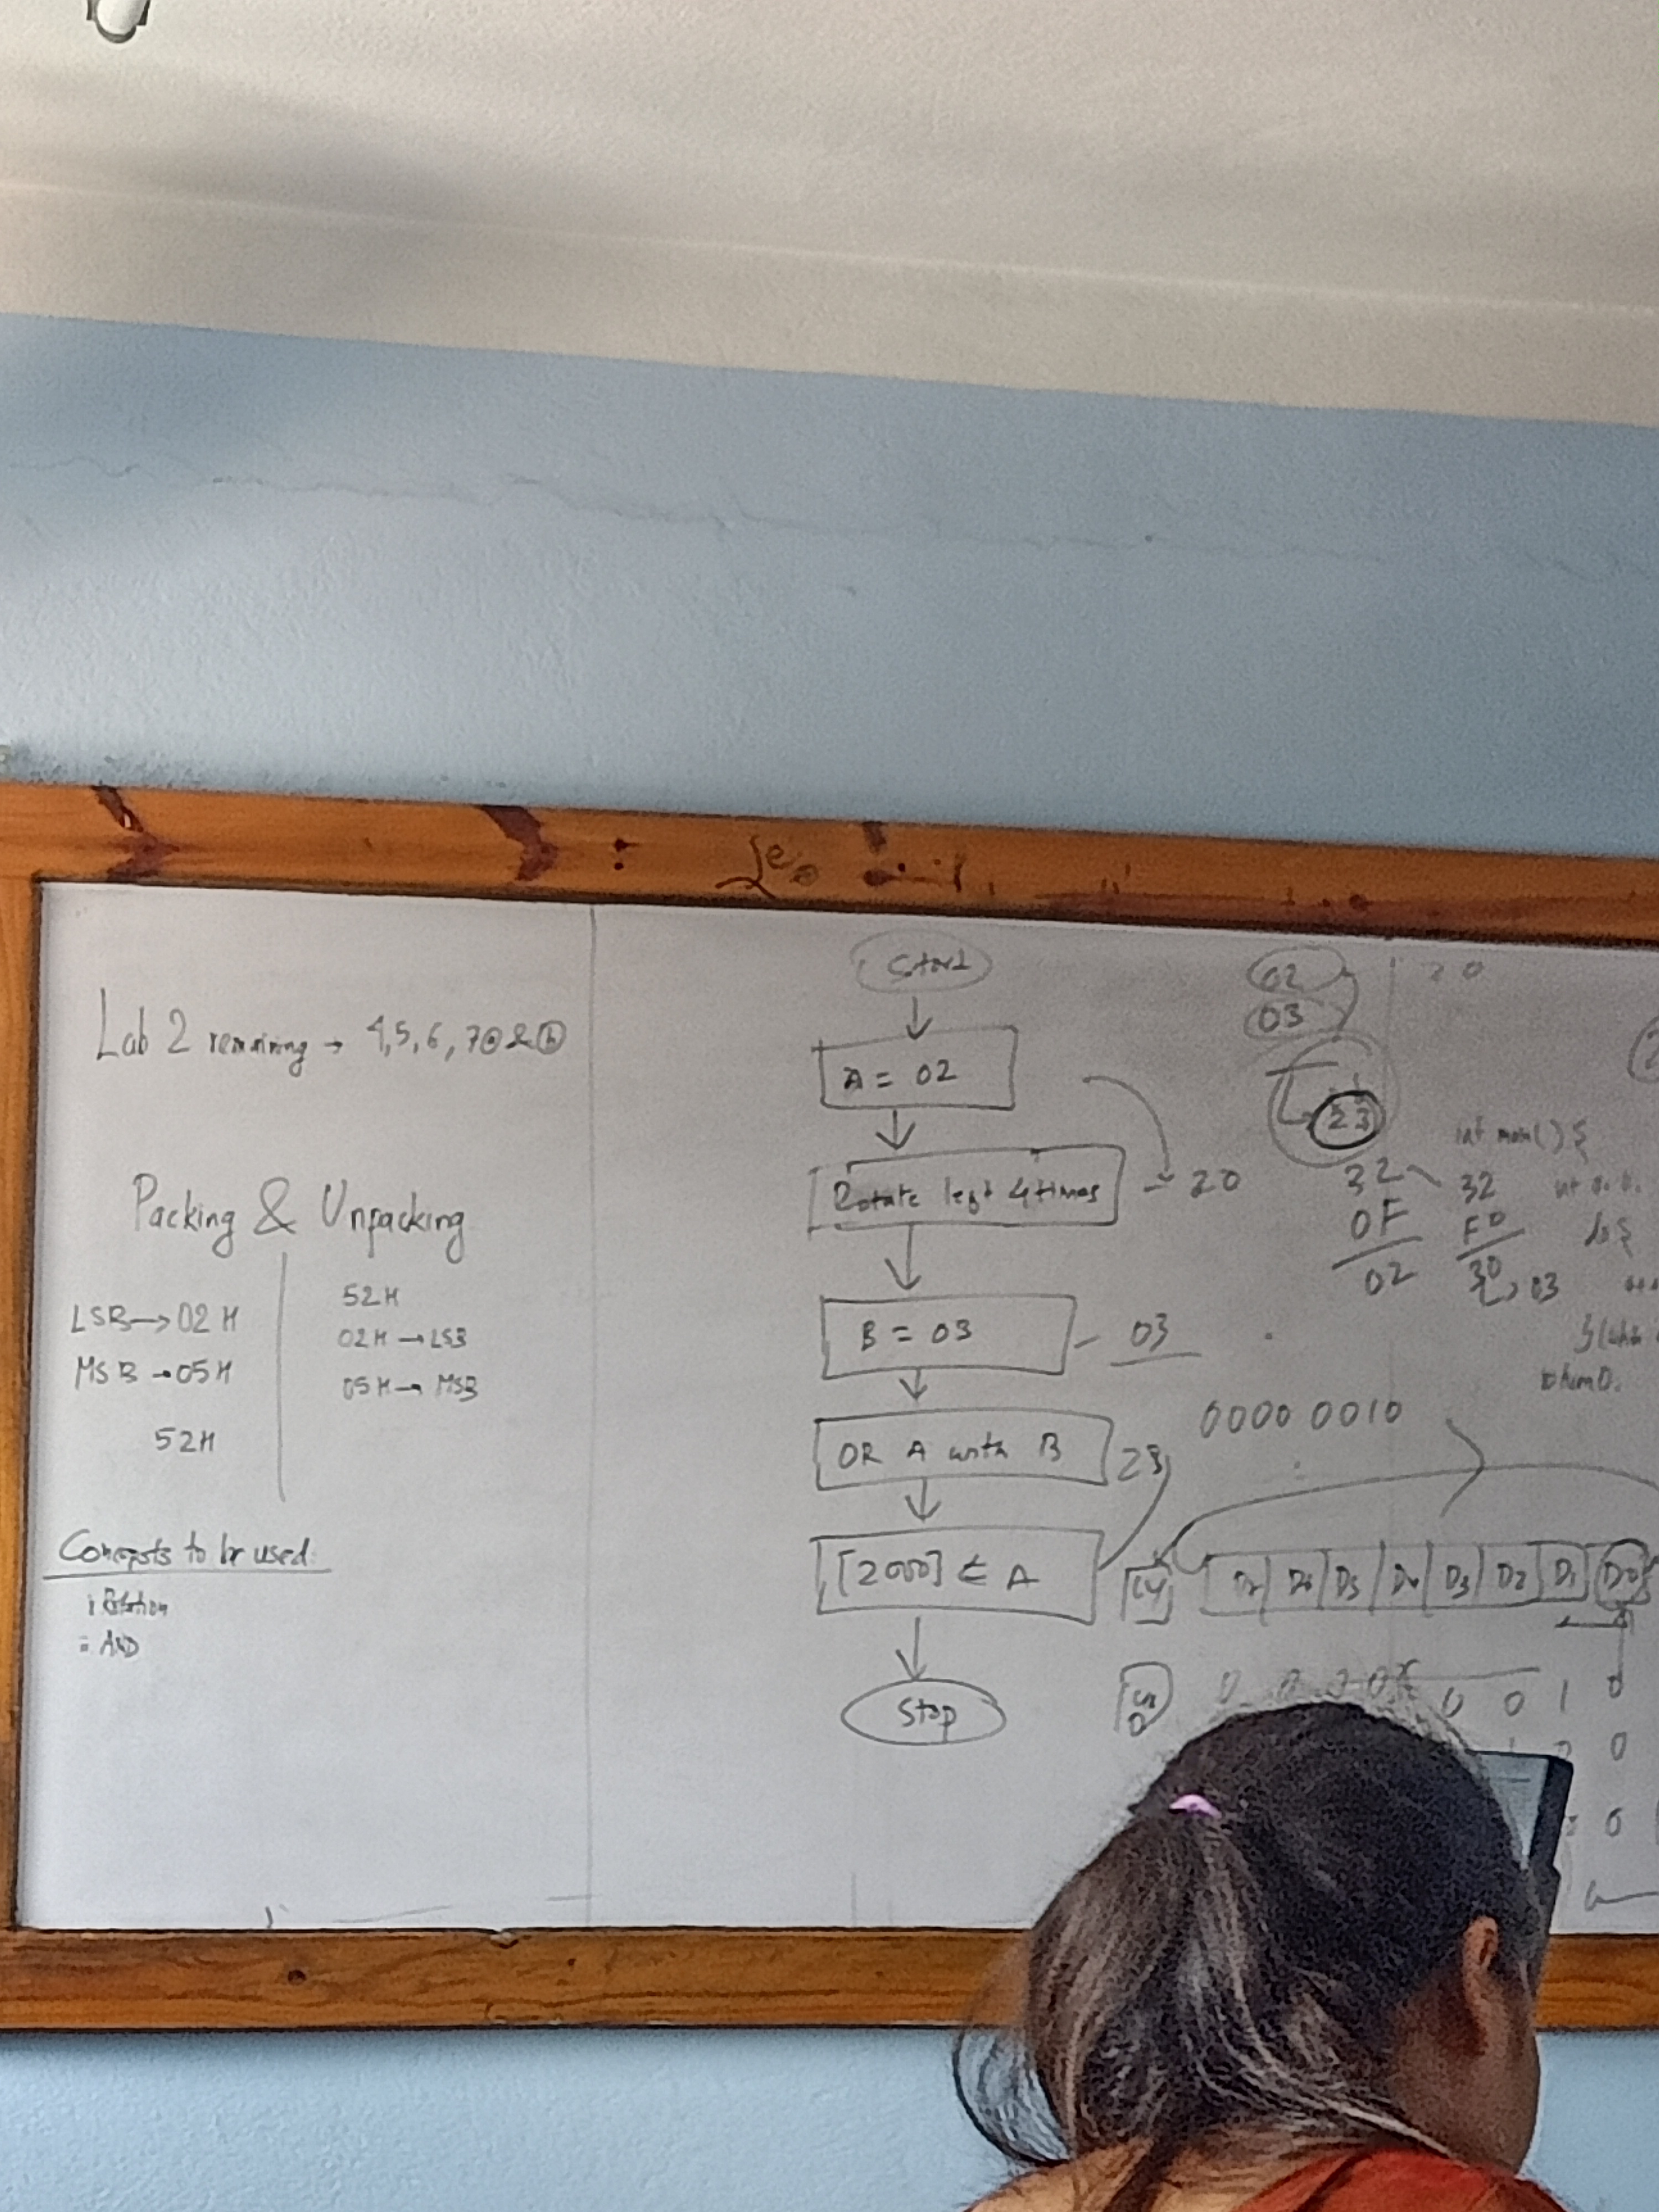 Lab 2 remaining → 4,5,6,7ⓐ&ⓑ
Packing & Unpacking
LSB→02H
MSB→05H
52H
52H
02H→LSB
05H→MSB
Concepts to be used:
i Rotation
ii AND
Start
A = 02
Rotate left 4 times
- 20
B = 03
- 03
OR A with B
23
[2000] ← A
Stop
02
03
23
20
32
0F
02
32
F0
30
03
int main() {
do {
0000 0010
CY
D7 D6 D5 D4 D3 D2 D1 D0
0 0 0 0 0 0 1 0
0
0